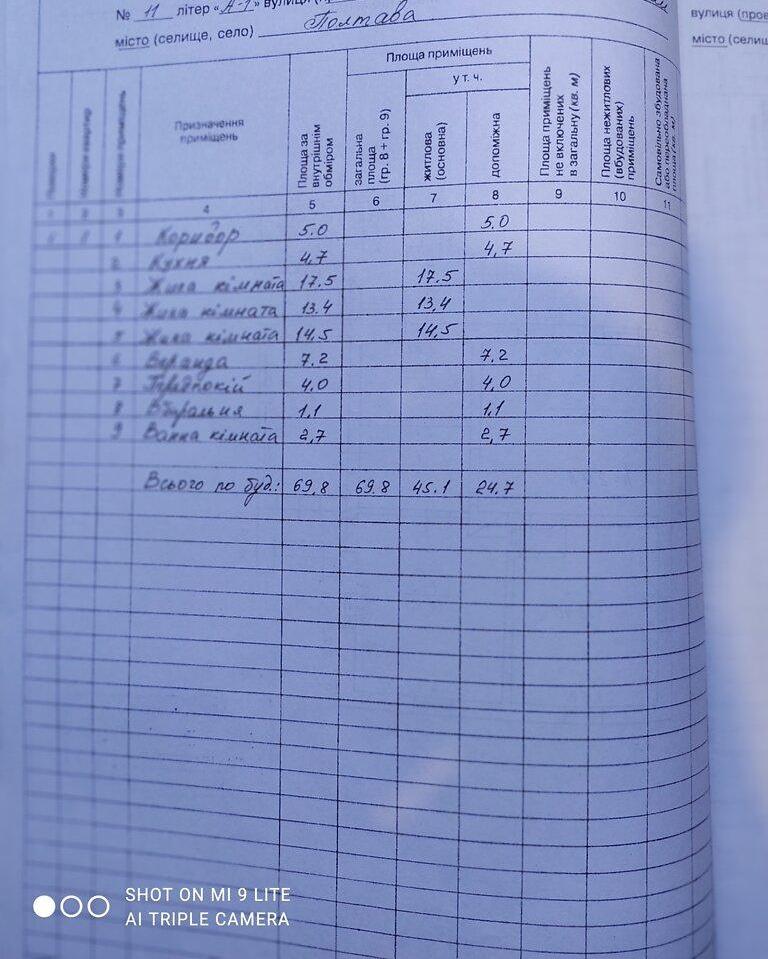 № 11 літер «А-1» вулиця
місто (селище, село) Полтава
вулиця (пров
місто (селищ
Площа приміщень
у т. ч.
Поверхи
Номери квартир
Номери приміщень
Призначення приміщень
Площа за внутрішнім обміром
загальна площа (гр. 8 + гр. 9)
житлова (основна)
допоміжна
Площа приміщень не включених в загальну (кв. м)
Площа нежитлових (вбудованих) приміщень
Самовільно збудована або переобладнана площа (кв. м)
1 2 3 4 5 6 7 8 9 10 11
1 Коридор 5.0 5.0
2 Кухня 4,7 4,7
3 Жила кімната 17.5 17.5
4 Жила кімната 13.4 13,4
5 Жила кімната 14,5 14,5
6 Веранда 7.2 7.2
7 Передпокій 4.0 4,0
8 Вбиральня 1.1 1.1
9 Ванна кімната 2,7 2,7
Всього по буд.: 69,8 69.8 45.1 24.7
SHOT ON MI 9 LITE
AI TRIPLE CAMERA